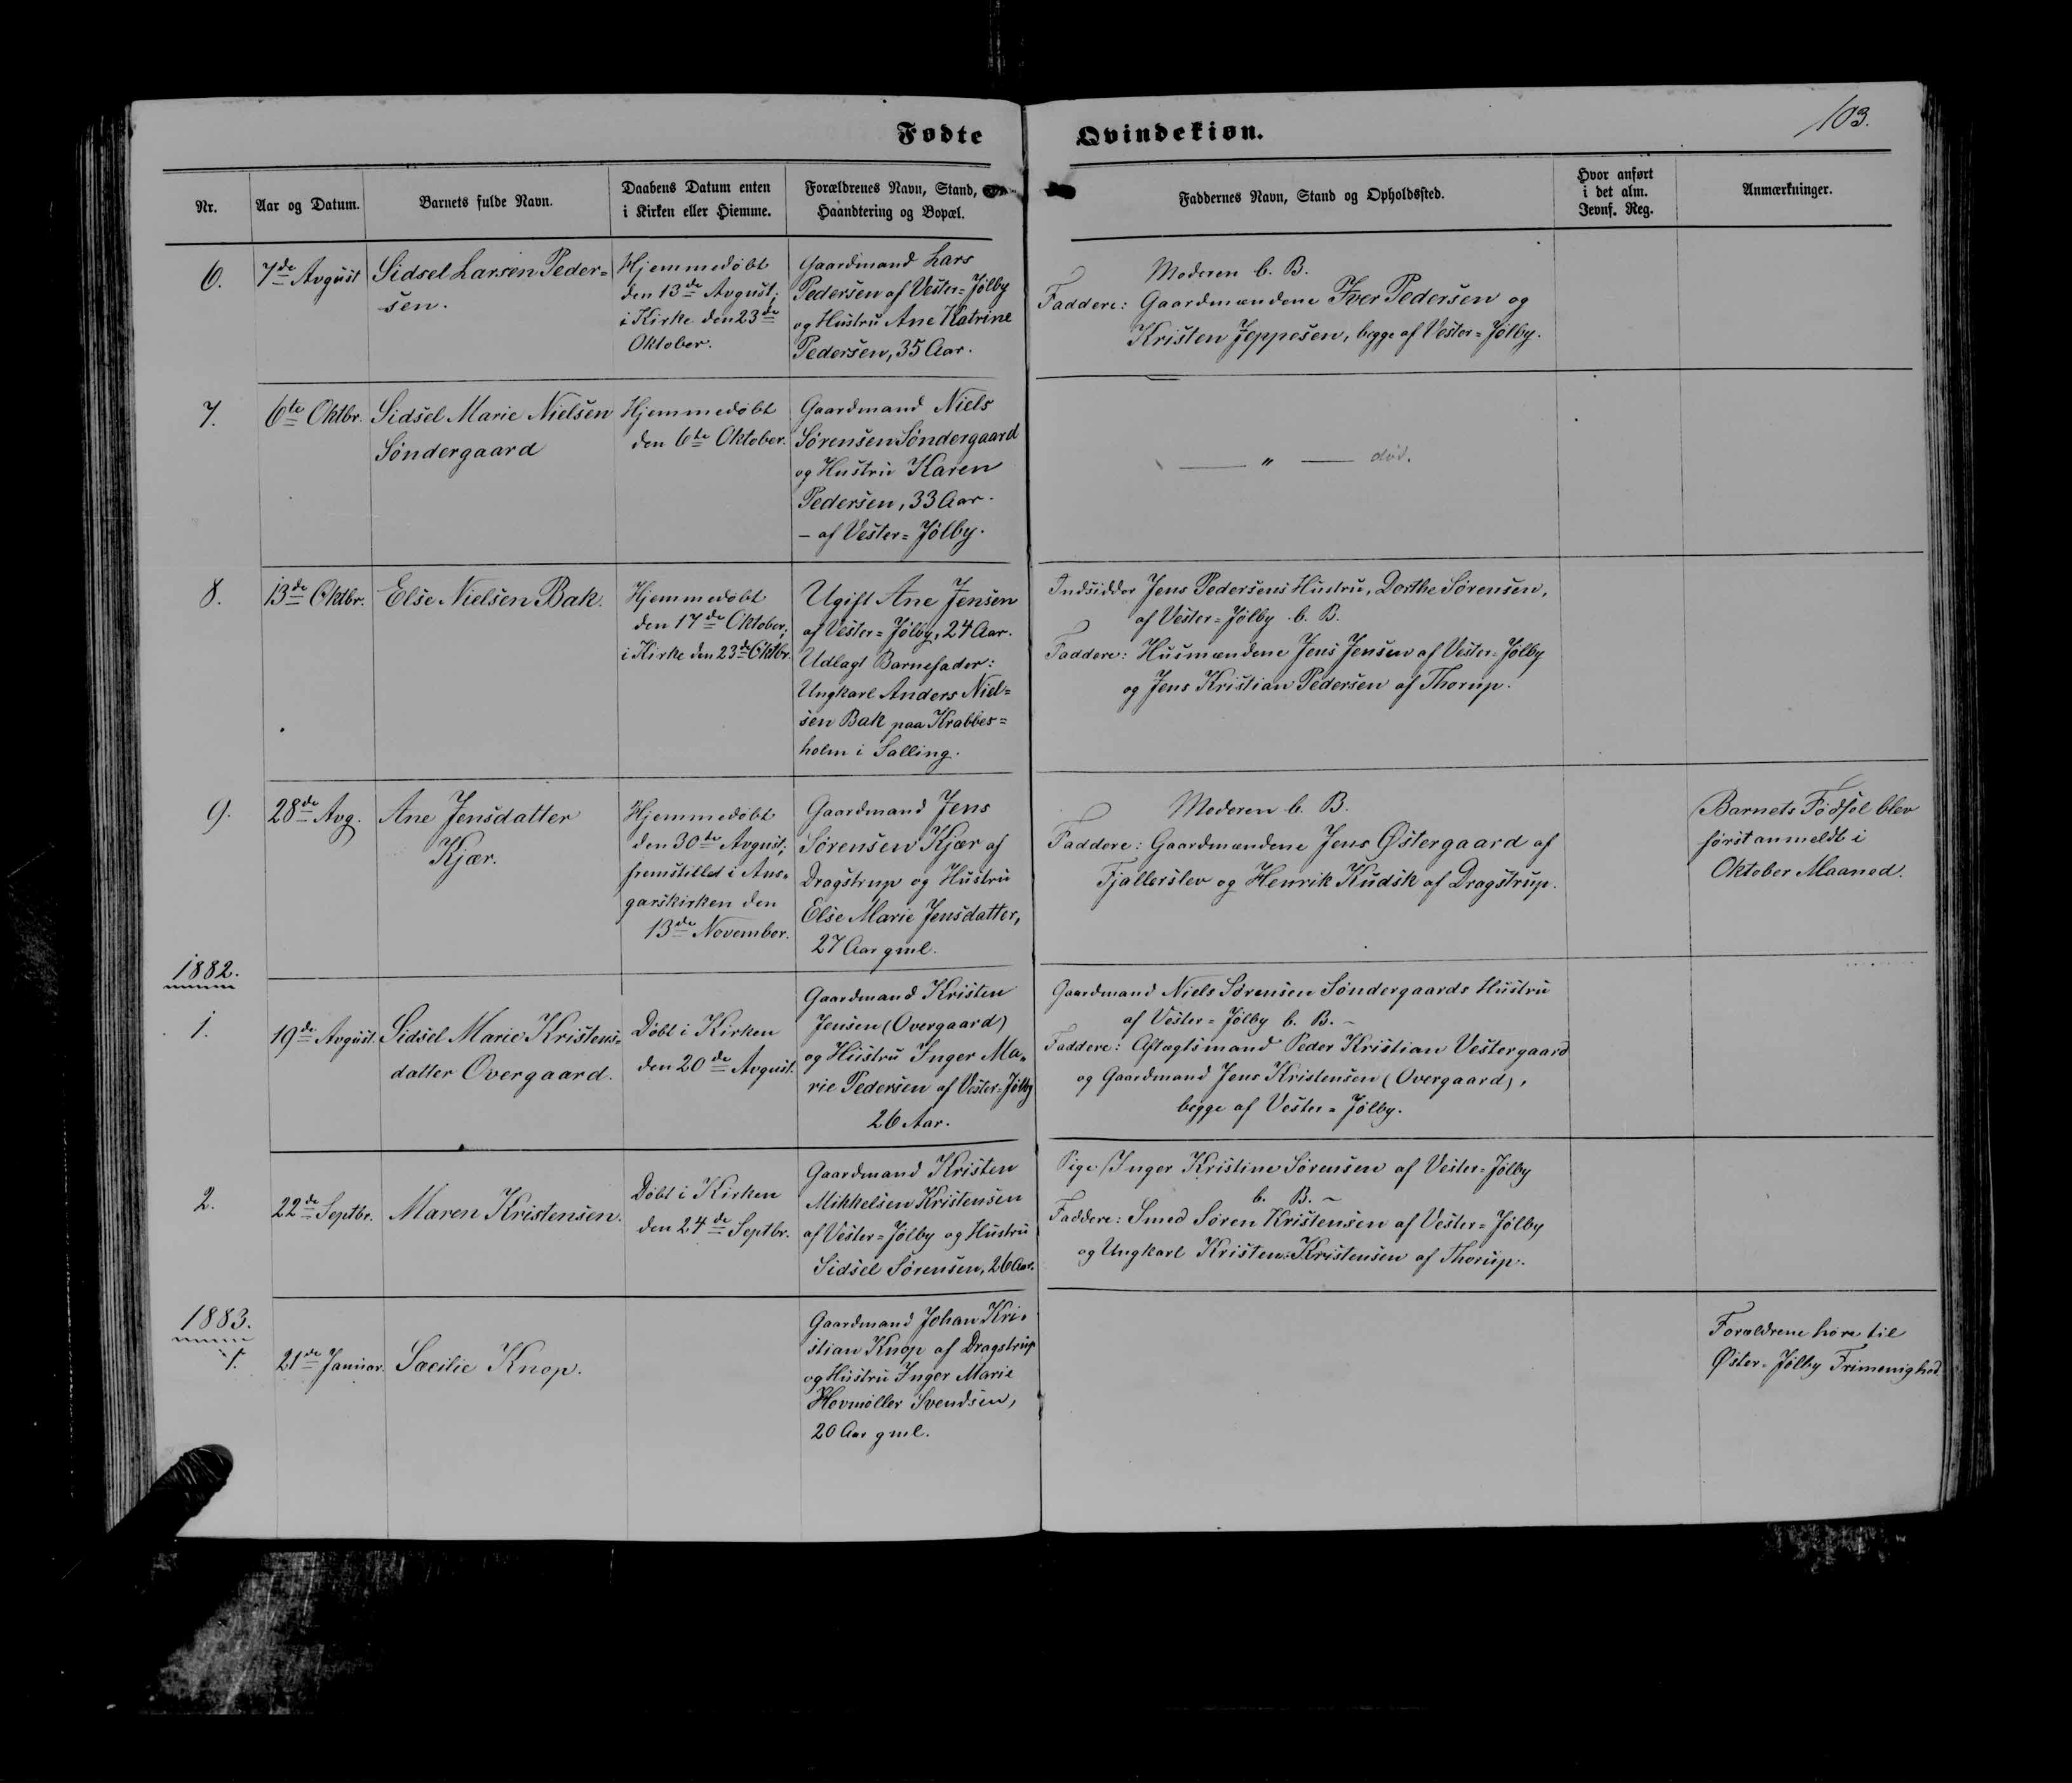 Fødte Qvindekiøn.
103.
Nr.
Aar og Datum.
Barnets fulde Navn.
Daabens Datum enten
i Kirken eller Hiemme.
Forældrenes Navn, Stand,
Haandtering og Bopæl.
Faddernes Navn, Stand og Opholdssted.
Hvor anført
i det alm.
Jevnf. Reg.
Anmærkninger.
6.
7de Avgust
Sidsel Larsen Peder=
sen.
Hjemmedøbt
den 13de Avgust;
i Kirke den 23de
Oktober.
Gaardmand Lars
Pedersen af Vester=Jølby
og Hustru Ane Katrine
Pedersen, 35 Aar.
Moderen b. B.
Faddere: Gaardmændene Iver Pedersen og
Kristen Jeppesen, begge af Vester=Jølby.
7.
6te Oktbr.
Sidsel Marie Nielsen
Søndergaard
Hjemmedøbt
den 6te Oktober.
Gaardmand Niels
Sørensen Søndergaard
og Hustru Karen
Pedersen, 33 Aar.
– af Vester=Jølby.
— " — død.
8.
13de Oktbr.
Else Nielsen Bak.
Hjemmedøbt
den 17de Oktober;
i Kirke den 23de Oktbr.
Ugift Ane Jensen
af Vester=Jølby, 24 Aar.
Udlagt Barnefader:
Ungkarl Anders Niel=
sen Bak paa Krabbes=
holm i Salling.
Indsidder Jens Pedersens Hustru, Dorthe Sørensen,
af Vester=Jølby b. B.
Faddere: Husmændene Jens Jensen af Vester=Jølby
og Jens Kristian Pedersen af Thorup.
9.
28de Avg.
Ane Jensdatter
Kjær.
Hjemmedøbt
den 30te Avgust;
fremstillet i Ans=
garskirken den
13de November.
Gaardmand Jens
Sørensen Kjær af
Dragstrup og Hustru
Else Marie Jensdatter,
27 Aar gml.
Moderen b. B.
Faddere: Gaardmændene Jens Østergaard af
Fjallerslev og Henrik Kudsk af Dragstrup.
Barnets Fødsel blev
først anmeldt i
Oktober Maaned.
1882.
1.
19de Avgust.
Sidsel Marie Kristens=
datter Overgaard.
Døbt i Kirken
den 20de Avgust.
Gaardmand Kristen
Jensen (Overgaard)
og Hustru Inger Ma=
rie Pedersen af Vester=Jølby
26 Aar.
Gaardmand Niels Sørensen Søndergaards Hustru
af Vester=Jølby b. B. –
Faddere: Aftægtsmand Peder Kristian Vestergaard
og Gaardmand Jens Kristensen (Overgaard),
begge af Vester=Jølby.
2.
22de Septbr.
Maren Kristensen.
Døbt i Kirken
den 24de Septbr.
Gaardmand Kristen
Mikkelsen Kristensen
af Vester=Jølby og Hustru
Sidsel Sørensen, 26 Aar.
Pige Inger Kristine Sørensen af Vester=Jølby
b. B. –
Faddere: Smed Søren Kristensen af Vester=Jølby
og Ungkarl Kristen Kristensen af Thorup.
1883.
1.
21de Januar.
Sæcilie Knop.
Gaardmand Johan Kri=
stian Knop af Dragstrup
og Hustru Inger Marie
Hovmøller Svendsen,
20 Aar gml.
Forældrene høre til
Øster=Jølby Frimenighed.